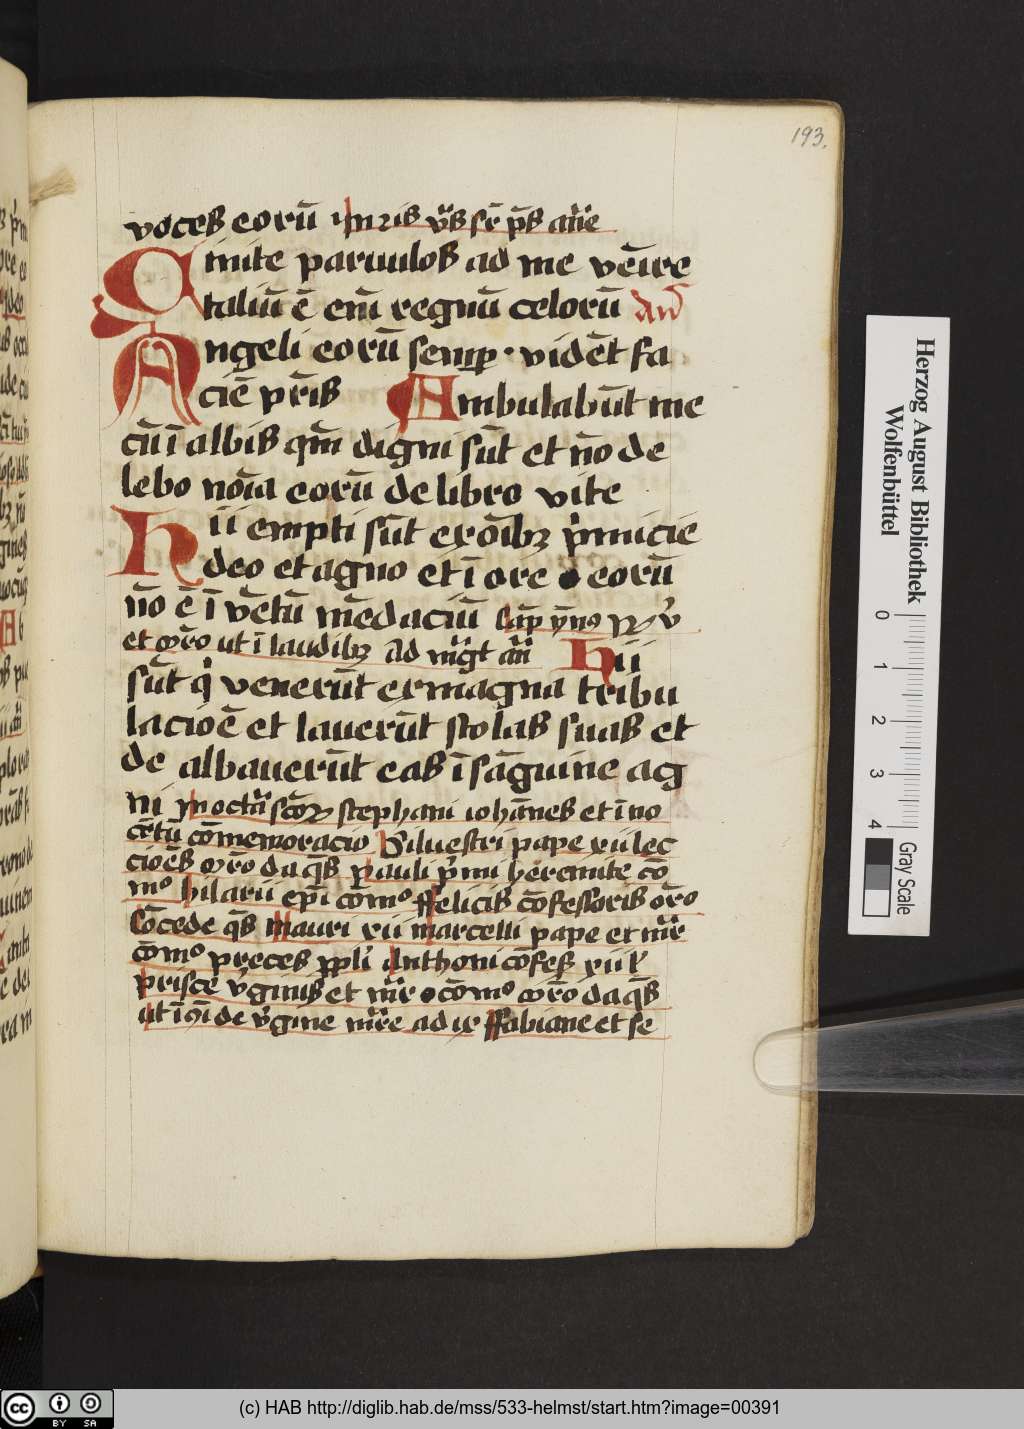 193.
voces eorū in 2is v̄s sr̄ p̄s an̄e
Sinite paruulos ad me vēire
taliū ē em̄ regnū celorū an̄
Angeli eorū semp · vidēt fa
ciē pr̄is Ambulabūt me
cū ī albis qm̄ digni sūt et nō de
lebo noīa eorū de libro vite
Hii empti sūt ex oīb3 p̄micie
deo et agno et ī ore eorū
nō ē ī vētū mēdaciū
et or̄o ut ī laudib3 ad an̄ Hii
sūt q̄ venerūt ex magna tribu
lacioē et lauerūt stolas suas et
de albauerūt eas ī sāguine ag
ni In octā stephani iohānes et īno
cētū cōmemoracio Siluestri pape xii lec
cioēs or̄o da q̄s pauli p̄mi heremite cō
mo hilarii ep̄i cōmo ffelicis cōfessoris or̄o
Cōcede q̄s Mauri xii marcelli pape et mr̄
cōmo preces ppli Anthoni cōfes xii l
prisce v̄ginis et mr̄ cōmo or̄o da q̄s
ut ī de v̄gine mr̄e ad ix ffabiane et se
Herzog August Bibliothek
Wolfenbüttel
0 1 2 3 4
Gray Scale
CC BY SA
(c) HAB http://diglib.hab.de/mss/533-helmst/start.htm?image=00391